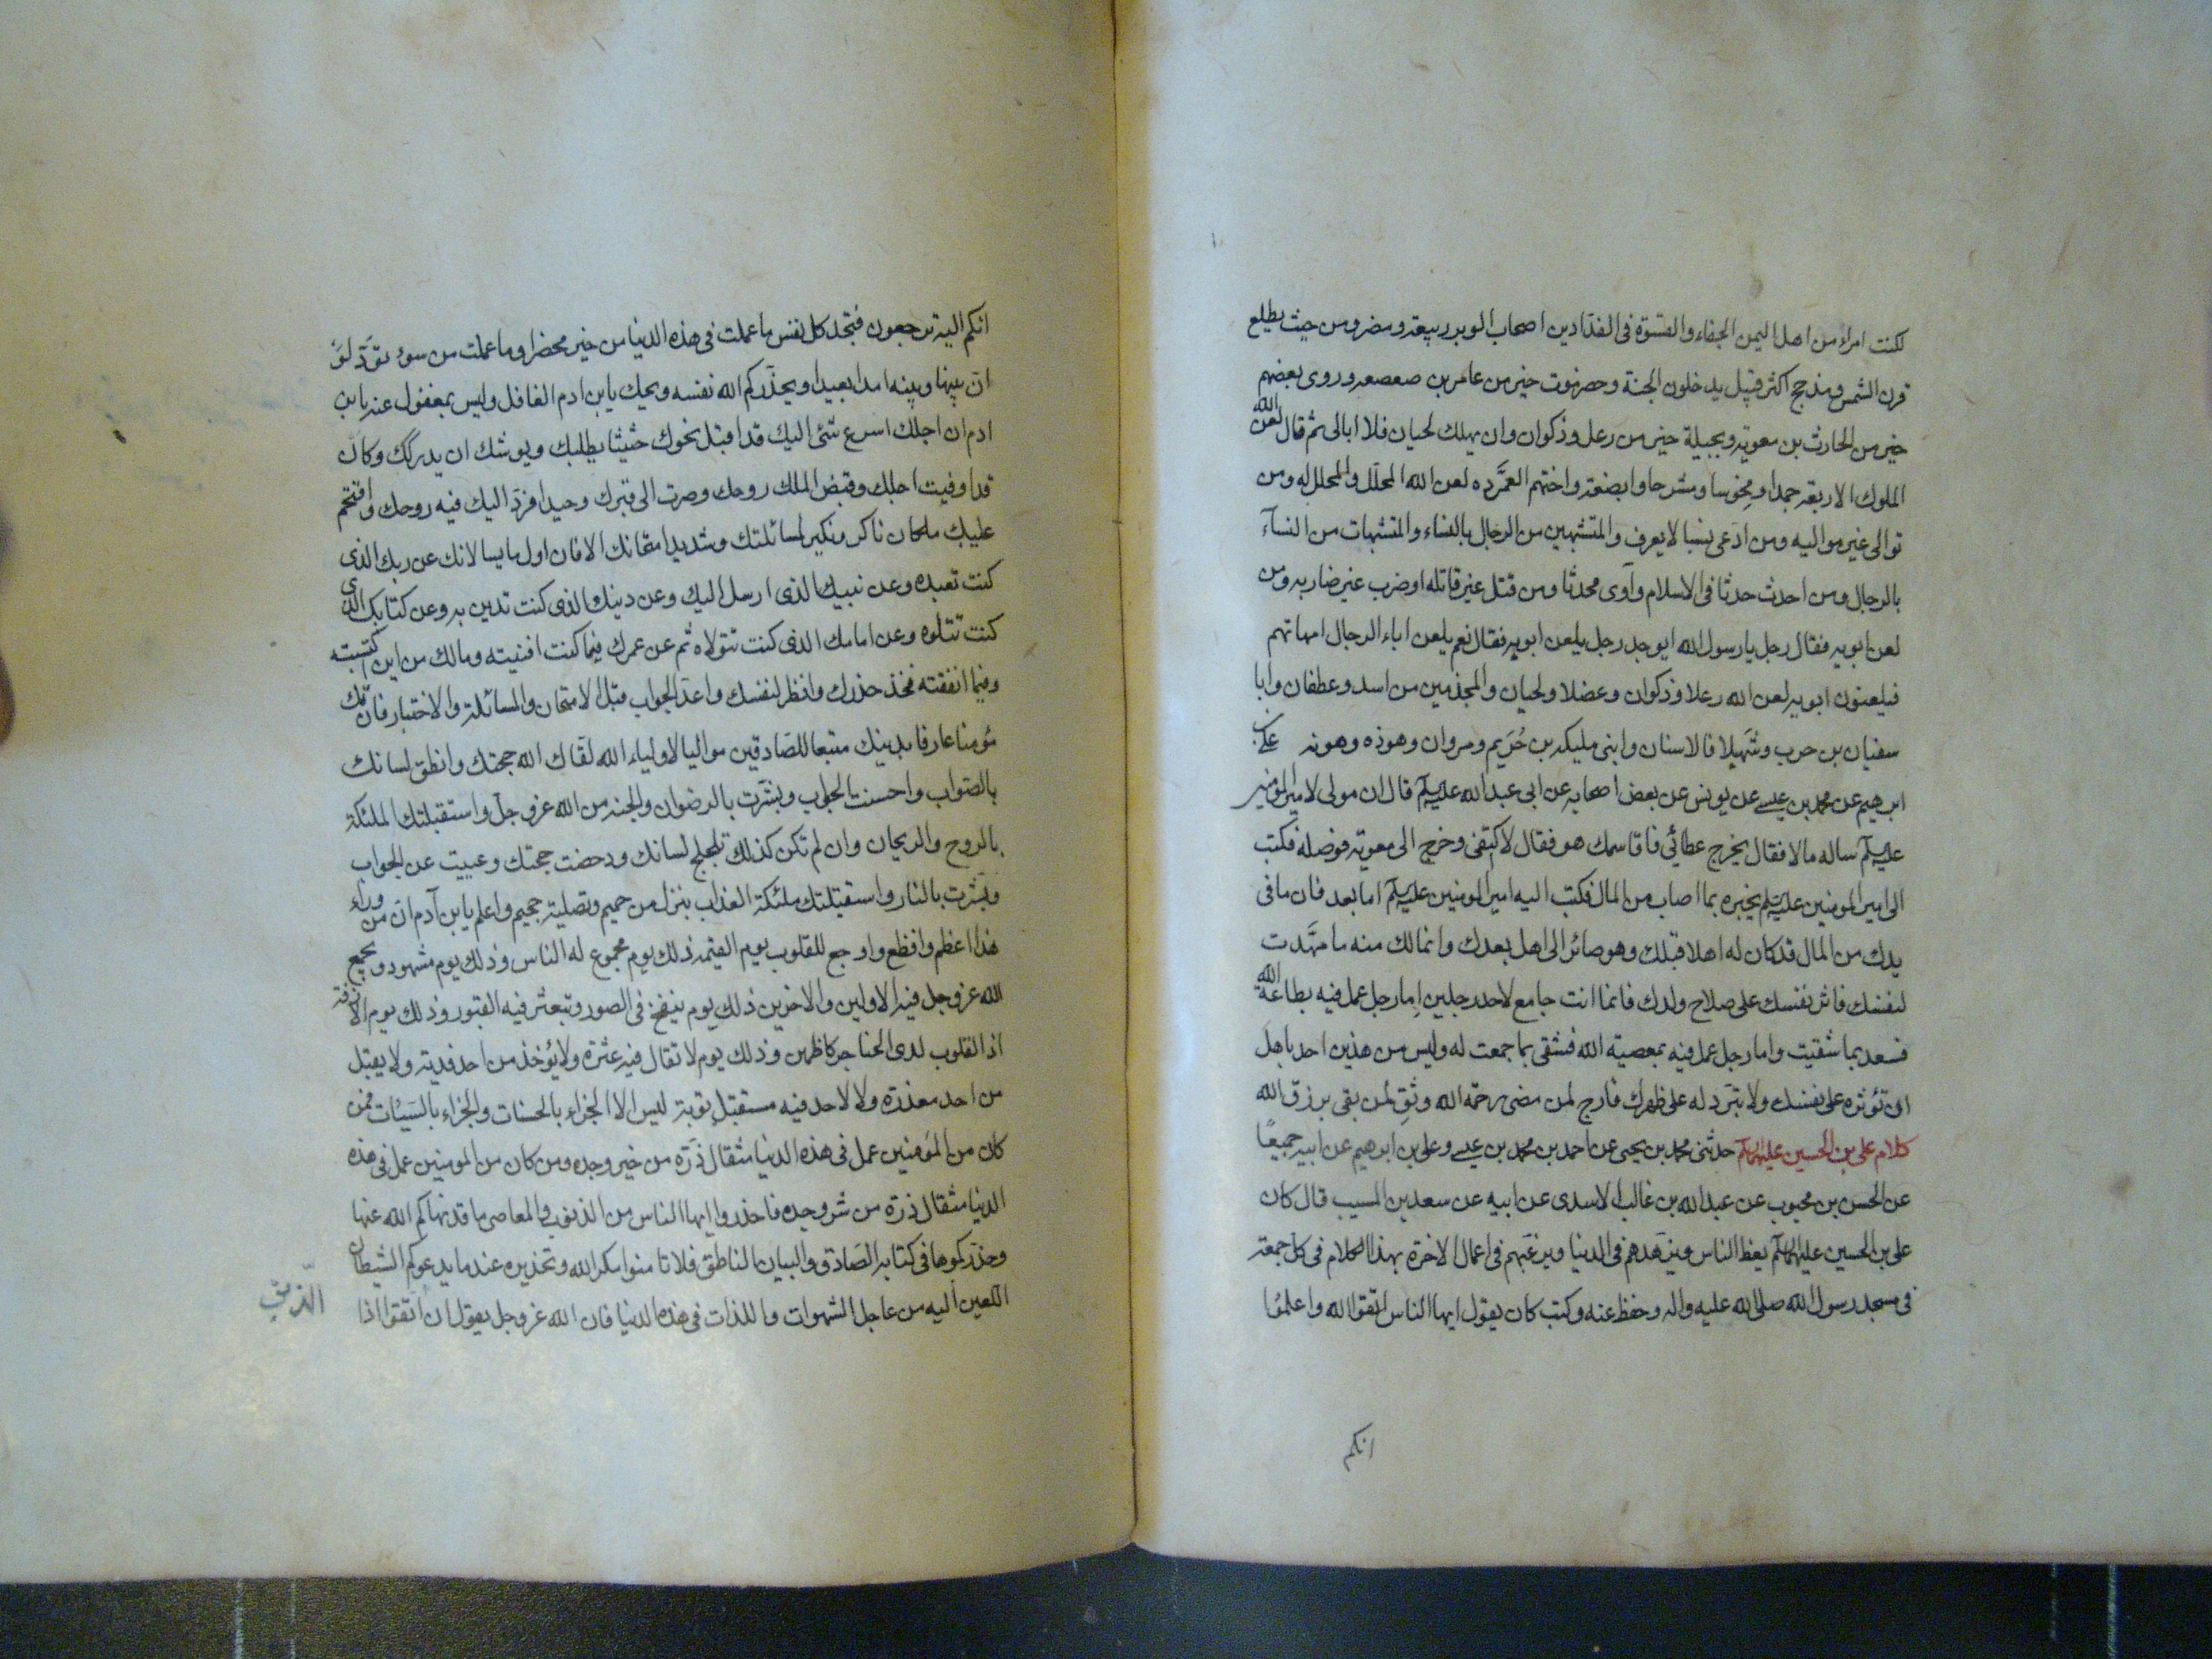 لكنت امراء من اهل اليمن الجفاء والقسوة فى الفدادين اصحاب الوبر ربيعة ومضر ومن حيث يطلع
قرن الشمس ومذحج اكثر قبيل يدخلون الجنة وحضرموت خير من عامر بن صعصعه وروى بعضهم
خير من الحارث بن معويه وبجيلة خير من رعل وذكوان وان يهلك لحيان فلا ابالى ثم قال لعن الله
الملوك الاربعه جمدا ومخوسا ومشرحا وابضعة واختهم العمرده لعن الله المحلل والمحلل له ومن
توالى غير مواليه ومن ادعى نسبا لا يعرف والمتشبهين من الرجال بالنساء والمتشبهات من النسآء
بالرجال ومن احدث حدثا فى الاسلام وآوى محدثا ومن قتل غير قاتله او ضرب غير ضاربه ومن
لعن ابويه فقال رجل يا رسول الله ايوجد رجل يلعن ابويه فقال نعم يلعن اباء الرجال امهاتهم
فيلعنون ابويه لعن الله رعلا وذكوان وعضلا ولحيان والمجذمين من اسد وغطفان وابا
سفيان بن حرب وشهيلا ذا الاسنان وابنى مليكه بن حريم ومروان وهوذه وهونه على بن
ابرهيم عن محمد بن عيسى عن يونس عن بعض اصحابه عن ابى عبد الله عليه السلم قال ان مولى لامير المؤمنين
عليه السلم ساله مالا فقال يخرج عطائى فاقاسمك هو فقال لا اكتفى وخرج الى معويه فوصله فكتب
الى امير المومنين عليه السلم يخبره بما اصاب من المال فكتب اليه امير المومنين عليه السلم اما بعد فان ما فى
يدك من المال قد كان له اهلا قبلك وهو صائر الى اهل بعدك وانما لك منه ما مهدت
لنفسك فاثر نفسك على صلاح ولدك فانما انت جامع لاحد رجلين اما رجل عمل فيه بطاعة الله
فسعد بما شقيت واما رجل عمل فيه بمعصية الله فشقى بما جمعت له وليس من هذين احد باهل
ان تؤثره على نفسك ولا تبرد له على ظهرك فارج لمن مضى رحمة الله وثق لمن بقى برزق الله
كلام على بن الحسين عليهما السلم حدثنى محمد بن يحيى عن احمد بن محمد بن عيسى وعلى بن ابرهيم عن ابيه جميعًا
عن الحسن بن محبوب عن عبد الله بن غالب الاسدى عن ابيه عن سعيد بن المسيب قال كان
على بن الحسين عليهما السلم يعظ الناس ويزهدهم فى الدنيا ويرغبهم فى اعمال الاخرة بهذا الكلام فى كل جمعة
فى مسجد رسول الله صلى الله عليه واله وحفظ عنه وكتب كان يقول ايها الناس اتقوا الله واعلموا
انكم
انكم اليه ترجعون فتجد كل نفس ما عملت فى هذه الدنيا من خير محضرا وما عملت من سوء تود لو
ان بينها وبينه امدا بعيدا ويحذركم الله نفسه ويحك يابن ادم الغافل وليس بمغفول عنه يابن
ادم ان اجلك اسرع شئ اليك قد اقبل نحوك حثيثا يطلبك ويوشك ان يدركك وكان
قد اوفيت اجلك وقبض الملك روحك وصرت الى قبرك وحيدا فرد اليك فيه روحك واقتحم
عليك ملكان ناكر ونكير لمسائلتك وشديد امتحانك الا فان اول ما يسالانك عن ربك الذى
كنت تعبده وعن نبيك الذى ارسل اليك وعن دينك الذى كنت تدين به وعن كتابك الذى
كنت تتلوه وعن امامك الذى كنت تتولاه ثم عن عمرك فيما كنت افنيته ومالك من اين اكتسبته
وفيما انفقته فخذ حذرك وانظر لنفسك واعد الجواب قبل الامتحان والمسائلة والاختبار فان تك
مؤمنا عارفا بدينك متبعا للصادقين مواليا لاولياء الله لقاك الله حجتك وانطق لسانك
بالصواب واحسنت الجواب وبشرت بالرضوان والجنة من الله عز وجل واستقبلتك الملئكة
بالروح والريحان وان لم تكن كذلك تلجلج لسانك ودحضت حجتك وعييت عن الجواب
وبشرت بالنار واستقبلتك ملئكة العذاب بنزل من حميم وتصلية جحيم واعلم يا ابن آدم ان من وراء
هذا اعظم وافظع واوجع للقلوب يوم القيمة ذلك يوم مجموع له الناس وذلك يوم مشهود ويجمع
الله عز وجل فيه الاولين والاخرين ذلك يوم ينفخ فى الصور وتبعثر فيه القبور وذلك يوم الازفة
اذ القلوب لدى الحناجر كاظمين وذلك يوم لا تقال فيه عثرة ولا يؤخذ من احد فدية ولا يقبل
من احد معذرة ولا لاحد فيه مستقبل توبة ليس الا الجزاء بالحسنات والجزاء بالسيئات فمن
كان من المؤمنين عمل فى هذه الدنيا مثقال ذرة من خير وجده ومن كان من المومنين عمل فى هذه
الدنيا مثقال ذرة من شر وجده فاحذروا ايها الناس من الذنوب والمعاصى ما قد نهاكم الله عنها
وحذركموها فى كتابه الصادق والبيان الناطق فلا تامنوا مكر الله وتحذيره عند ما يدعوكم الشيطان
اللعين اليه من عاجل الشهوات واللذات فى هذه الدنيا فان الله عز وجل يقول ان اتقوا اذا
الذين